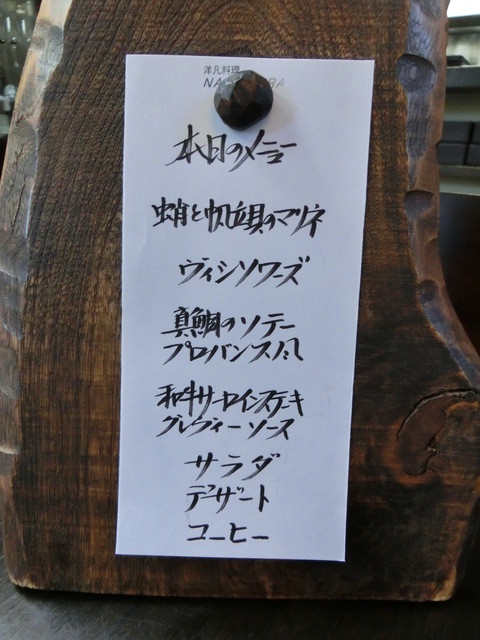 洋凡料理
本日のメニュー
蛸と帆立貝のマリネ
ヴィシソワーズ
真鯛のソテー
プロバンス風
和牛サーロインステーキ
グレヴィーソース
サラダ
デザート
コーヒー